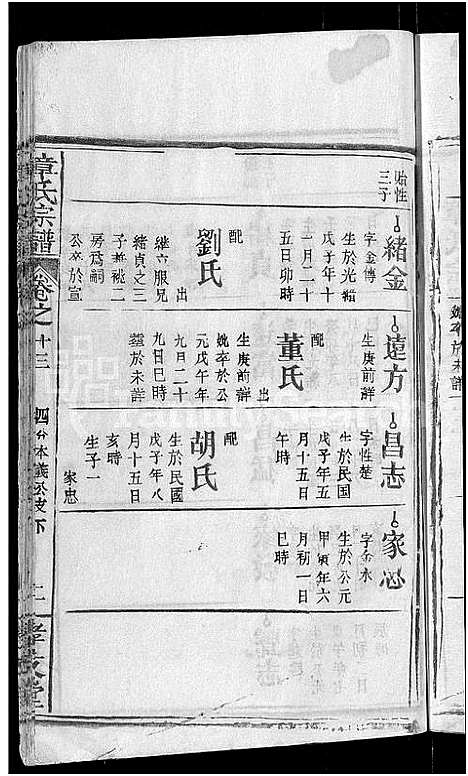 始性
三子
緒金
字金傳
生於光緒
戊子年十
一月二十
五日卯時
配
劉氏
出
繼立服兄
緒貞之三
子兼祧二
房為嗣
公卒於宣
遠方
生庚前詳
配
董氏
出
生庚前詳
娩卒於公
元戊午年
九月二十
九日巳時
塟於未詳
昌志
字性楚
生於民国
戊子年五
月十五日
午時
配
胡氏
生於民國
戊子年八
月十五日
亥時
生子一
家忠
家忠
字金水
生於公元
甲寅年六
月初一日
巳時
章氏宗譜
卷之十三
四分休義公支下
十一
孝友堂